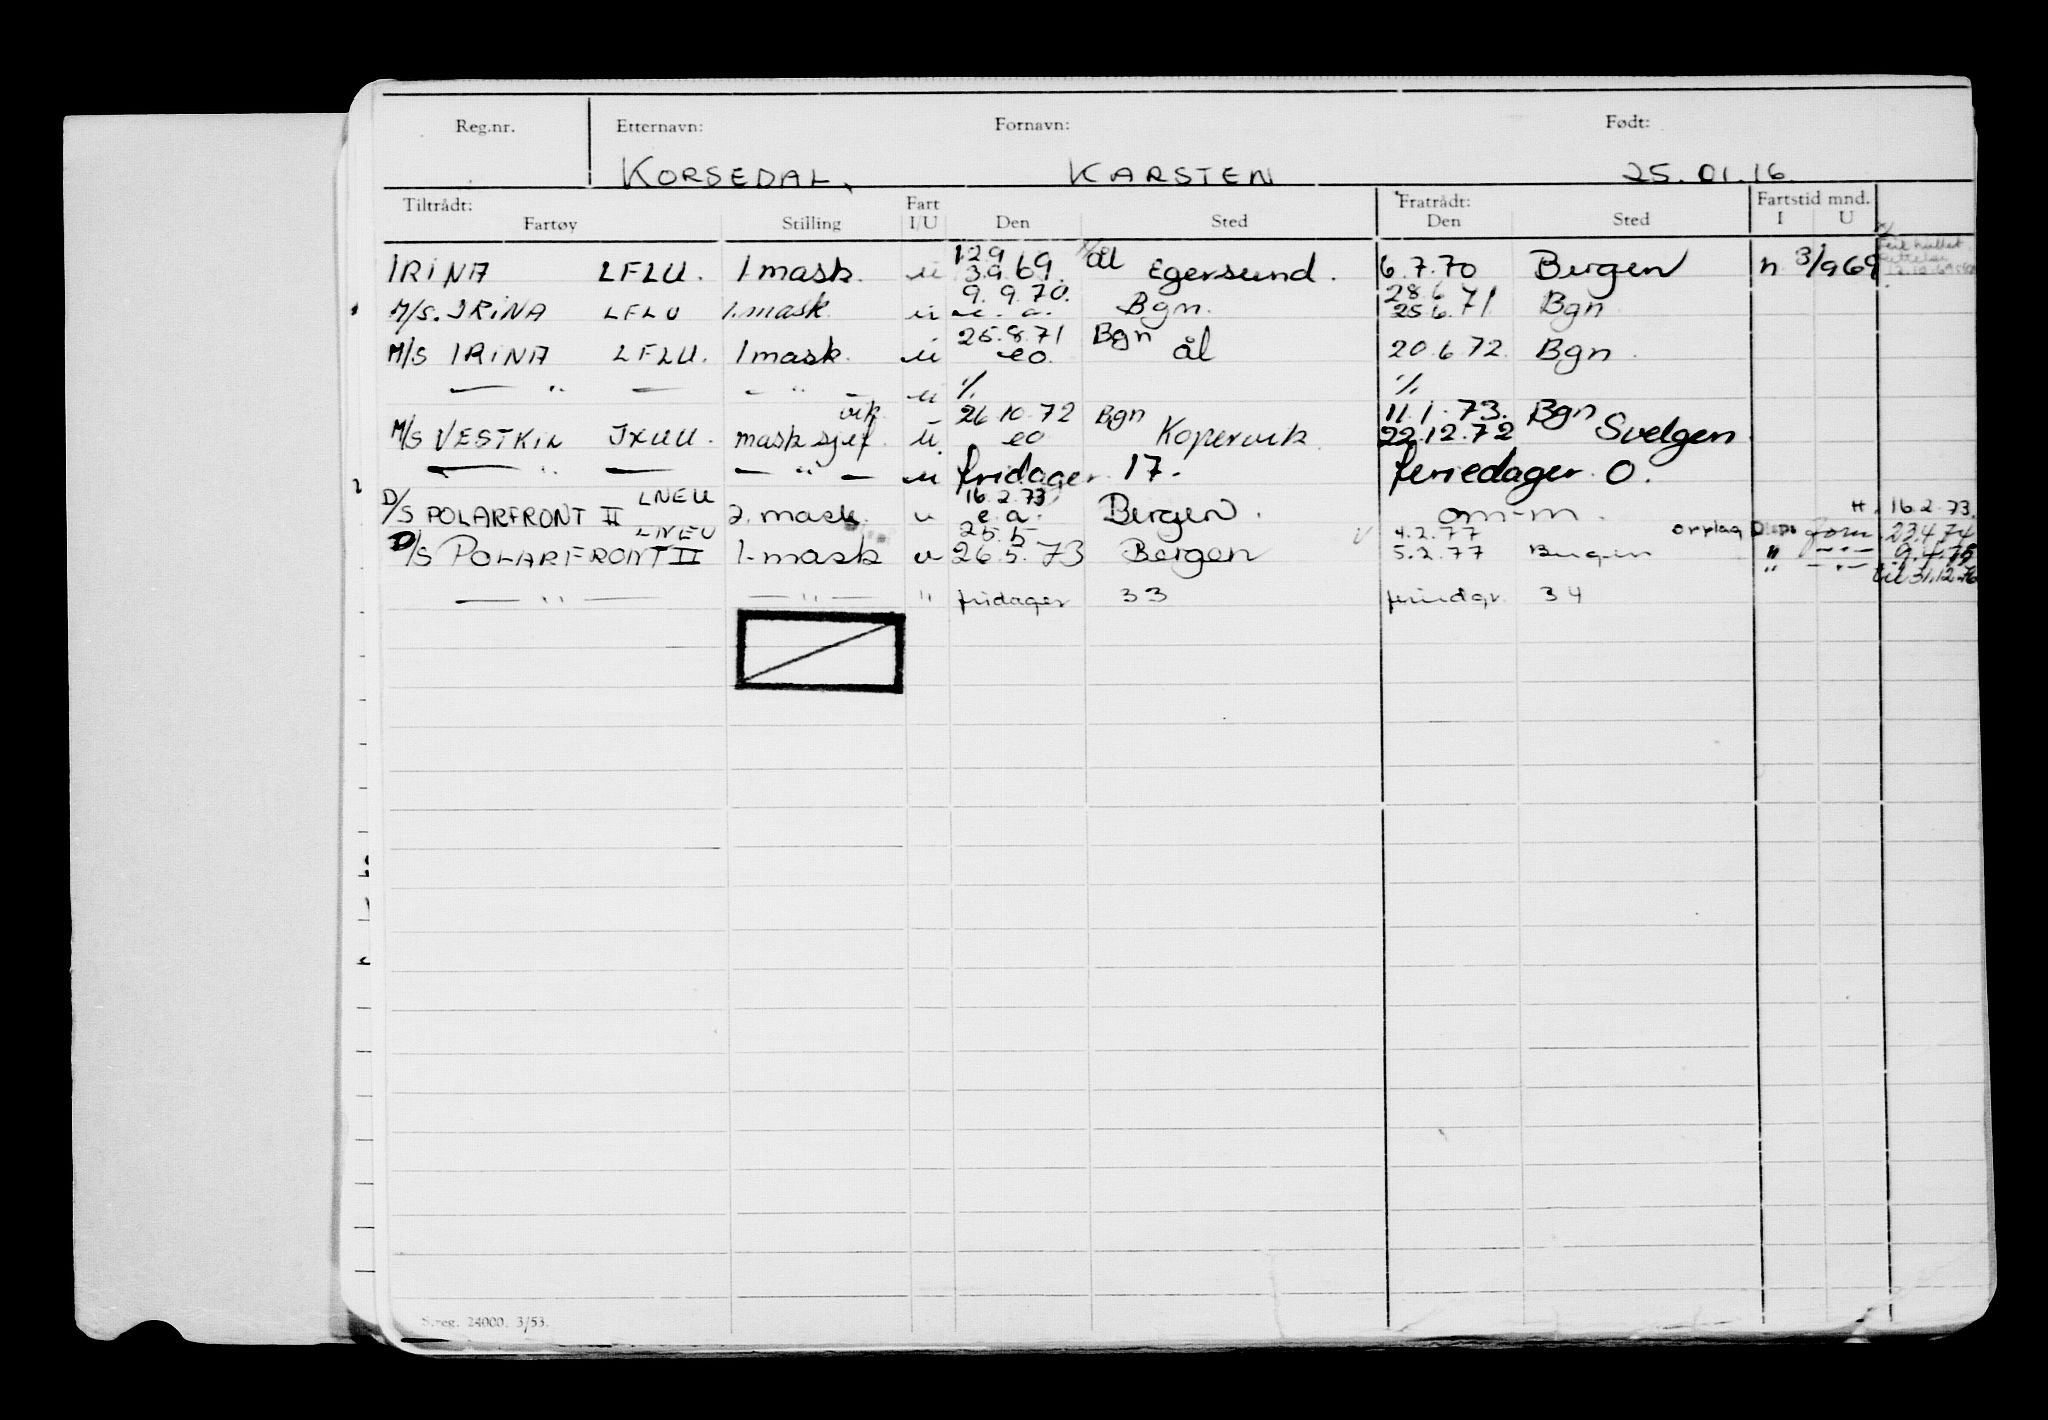 Reg.nr. Etternavn: Fornavn: Født:
KORSEDAL, KARSTEN 25.01.16
Tiltrådt: Fart Fratrådt: Fartstid mnd.
Fartøy Stilling I/U Den Sted Den Sted I U
12.9 ål
IRINA LFLU. 1.mask. u 3.9.69. Egersund. 6.7.70 Bergen n 3/9 69
9.9.70. 28.6
M/S. IRINA LFLU 1.mask. u e. a. Bgn. 25.6.71 Bgn
25.8.71 Bgn
M/S IRINA LFLU. 1mask. u eo. ål 20.6.72. Bgn.
— " — — " — u 1/1. 1/1.
vik. 26.10.72 Bgn 11.1.73. Bgn
M/S VESTKIN JXUU. mask sjef. u eo Kopervik. 22.12.72 Svelgen
— " — — " — u fridager. 17. feriedager. 0.
LNEU 16.2.73
D/S POLARFRONT II 2. mask. u e.a. Bergen. om-m. H. 16.2.73.
LNEU 25.5 4.2.77 opplag Disp. 23.4.74
D/S POLARFRONT II 1. mask u 26.5.73 Bergen 5.2.77 Bergen " — " — 9.4.75
" — " — til 31.12.76
— " — — " — " fridager 33 feriedgr. 34
S.reg. 24000. 3/53.